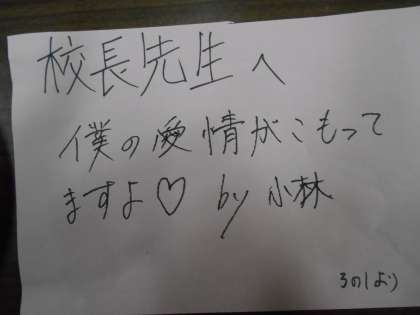 校長先生へ
僕の愛情がこもって
ますよ♡ by 小林
3の1より